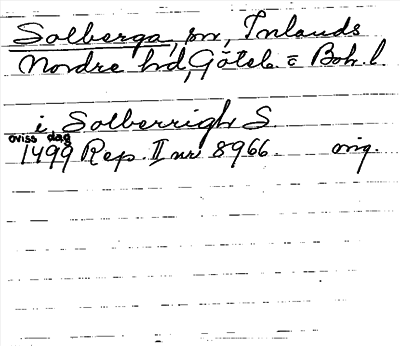 Solberga, sn, Inlands
Nordre hd, Göteb. o Boh. l.
i Solberrigh S.
oviss dag
1499 Rep. II nr 8966. orig.